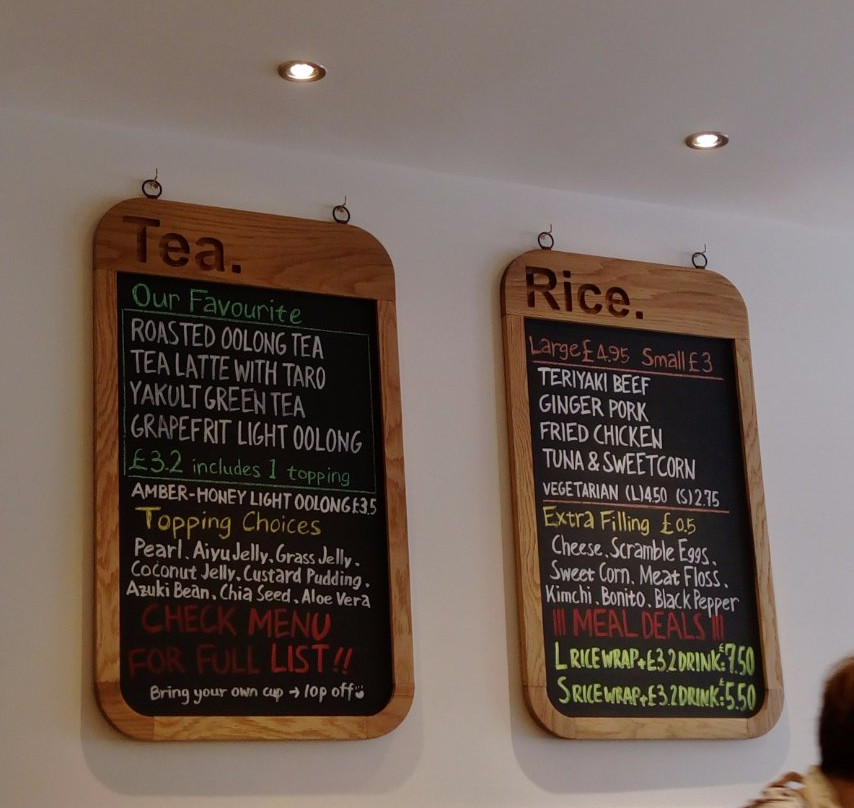 Tea.
Our Favourite
ROASTED OOLONG TEA
TEA LATTE WITH TARO
YAKULT GREEN TEA
GRAPEFRIT LIGHT OOLONG
£3.2 includes 1 topping
AMBER-HONEY LIGHT OOLONG £3.5
Topping Choices
Pearl. Aiyu Jelly. Grass Jelly.
Coconut Jelly. Custard Pudding.
Azuki Bean. Chia Seed. Aloe Vera
CHECK MENU
FOR FULL LIST!!
Bring your own cup → 10p off
Rice.
Large £4.95 Small £3
TERIYAKI BEEF
GINGER PORK
FRIED CHICKEN
TUNA & SWEETCORN
VEGETARIAN (L)4.50 (S)2.75
Extra Filling £0.5
Cheese. Scramble Eggs.
Sweet Corn. Meat Floss.
Kimchi. Bonito. Black Pepper
!!! MEAL DEALS !!!
L RICE WRAP+£3.2 DRINK: £7.50
S RICE WRAP+£3.2 DRINK: £5.50